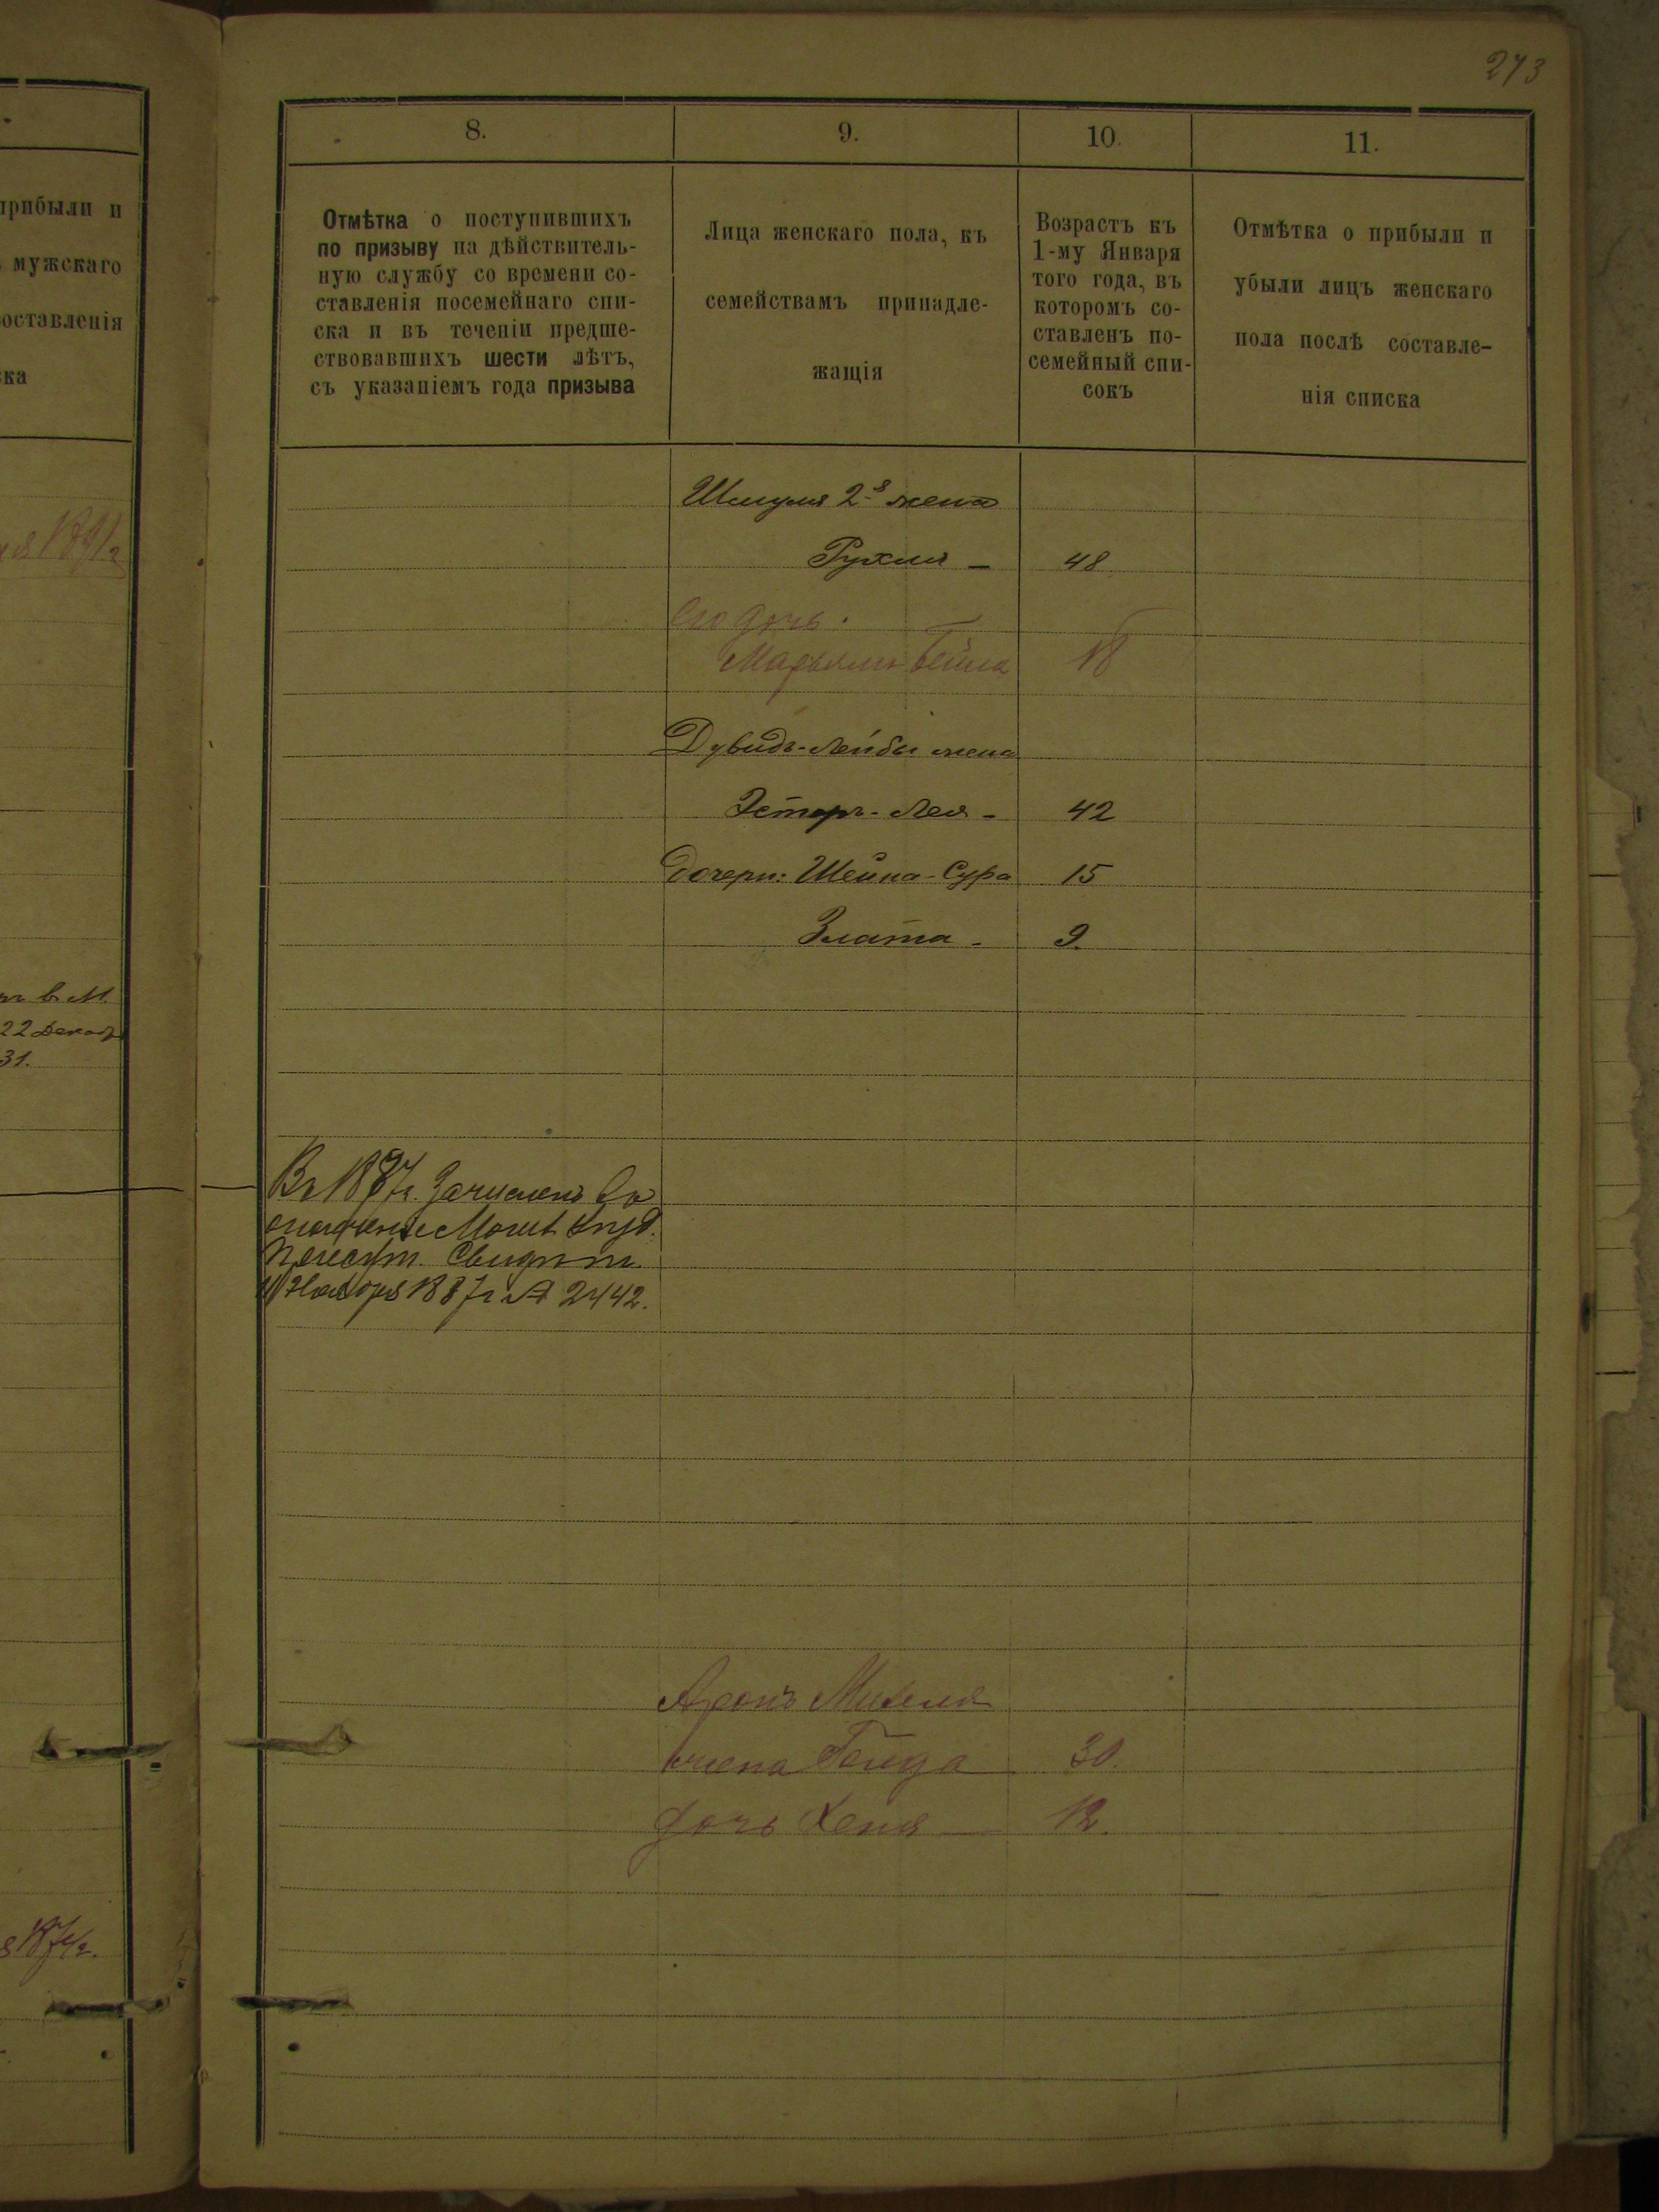 273
прибыли и
мужскаго
составленія
22 Декаб
31.
8.
9.
10.
11.
Отмѣтка о поступившихъ
по призыву на дѣйствитель-
ную службу со времени со-
ставленія посемейнаго спи-
ска и въ теченіи предше-
ствовавшихъ шести лѣтъ,
съ указаніемъ года призыва
Лица женскаго пола, къ
семействамъ принадле-
жащія
Возрастъ къ
1-му Января
того года, въ
которомъ со-
ставленъ по-
семейный спи-
сокъ
Отмѣтка о прибыли и
убыли лицъ женскаго
пола послѣ составле-
нія списка
Шмуля 2я жена
Рухля - 48
Его дочь.
Марьямъ Бейла 18
Дувидъ-Лейбы жена
Эстеръ-Лея - 42
дочери: Шейна-Сура 15
Злата - 9.
Въ 1887г. Зачисленъ въ
ополченіе
Свидѣт.
Ноября 1887г № 2442.
Аронъ Михеля
жена Гейда 30.
дочь Хеня 12.